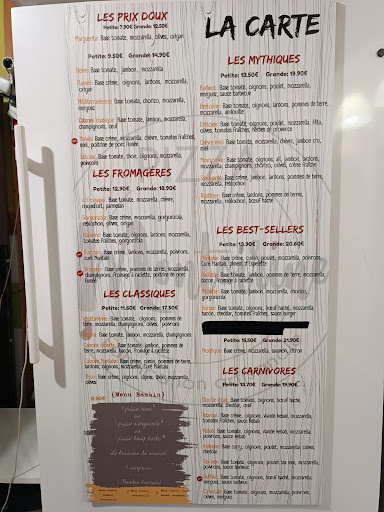 LA CARTE
LES PRIX DOUX
Petite: 7.90€ Grande: 12.50€
Marguerita: Base tomate, mozzarella, olives, origan
Petite: 9.50€ Grande: 14.90€
Reine: Base tomate, jambon, mozzarella
Base crème, oignons, lardons, mozzarella,
origan
Méditerranéenne: Base tomate, chorizo, mozzarella,
merguez
Calzone classique: Base tomate, jambon, mozzarella,
champignons, œuf
Base crème, mozzarella, chèvre, tomates fraîches,
miel, poitrine de porc fumée
Base tomate, thon, oignons, mozzarella,
poivrons
LES FROMAGÈRES
Petite: 12.90€ Grande: 18.90€
4 Fromages: Base tomate, mozzarella, chèvre,
roquefort, parmesan
Gorgonzola: Base crème, mozzarella, gorgonzola,
reblochon, olives, origan
Base tomate, oignons, lardons, mozzarella,
tomates fraîches, gorgonzola
Base crème, lardons, mozzarella, poivrons,
curé Nantais
Base crème, pommes de terres, mozzarella,
champignons, fromage à raclette, poitrine de porc
fumée
LES CLASSIQUES
Petite: 11.60€ Grande: 17.50€
Végétarienne: Base tomate, oignons, pommes de
terre, mozzarella, champignons, olives, poivrons
Base tomate, jambon, mozzarella, champignons
Calzone raclette: Base tomate, jambon, pommes de
terre, mozzarella, bacon, fromage à raclette
Calzone Nantaise: Base crème, cumin, pommes de
terre, lardons, oignons, mozzarella, curé Nantais
Base crème, citron, oignons, thon, mozzarella,
olives
(Menu Bambin)
8.50€
LES MYTHIQUES
Petite: 13.50€ Grande: 19.90€
Base crème, oignons, poulet, mozzarella,
merguez, sauce barbecue
Bretonne: Base tomate, oignons, lardons, pommes de terre,
mozzarella, andouille
Base crème, oignons, poulet, mozzarella, féta,
olives, tomates fraîches, herbes de provence
Chèvre miel: Base tomate, mozzarella, chèvre, jambon cru,
miel
Base tomate, oignons, ail, jambon, lardons,
mozzarella, champignons, chorizo, olives, crème fraîche
Base crème, jambon, lardons, pommes de terre,
mozzarella, reblochon
Base crème, lardons, pommes de terre,
mozzarella, reblochon, bœuf haché
LES BEST-SELLERS
Petite: 13.90€ Grande: 20.60€
Base crème, cumin, poulet, mozzarella, poivrons,
curé Nantais, piment d'Espelette
Raclette: Base crème, jambon, pommes de terre, mozzarella,
bacon, fromage à raclette
Base tomate, jambon, mozzarella, chorizo,
gorgonzola
Burger: Base tomate, oignons, bœuf haché, mozzarella,
bacon, cheddar, tomates fraîches, sauce burger
Petite: 15.50€ Grande: 21.90€
Nordique: Base crème, mozzarella, saumon, citron
LES CARNIVORES
Petite: 13.70€ Grande: 19.90€
Base tomate, oignons, bœuf haché, mozzarella,
cheddar, œuf
Base crème, oignons, viande kebab, mozzarella,
tomates fraîches, sauce kebab
Kebab: Base tomate, oignons, viande kebab, mozzarella,
poivrons, sauce kebab
Indienne: Base curry, oignons, poulet, mozzarella, olives,
cheddar
Tex mex: Base tomate, oignons, poulet, mozzarella,
poivrons, sauce barbecue
Buffalo: Base tomate, oignons, bœuf haché, mozzarella,
merguez, sauce barbecue
Orientale: Base tomate, oignons, mozzarella, merguez,
poivrons, œuf